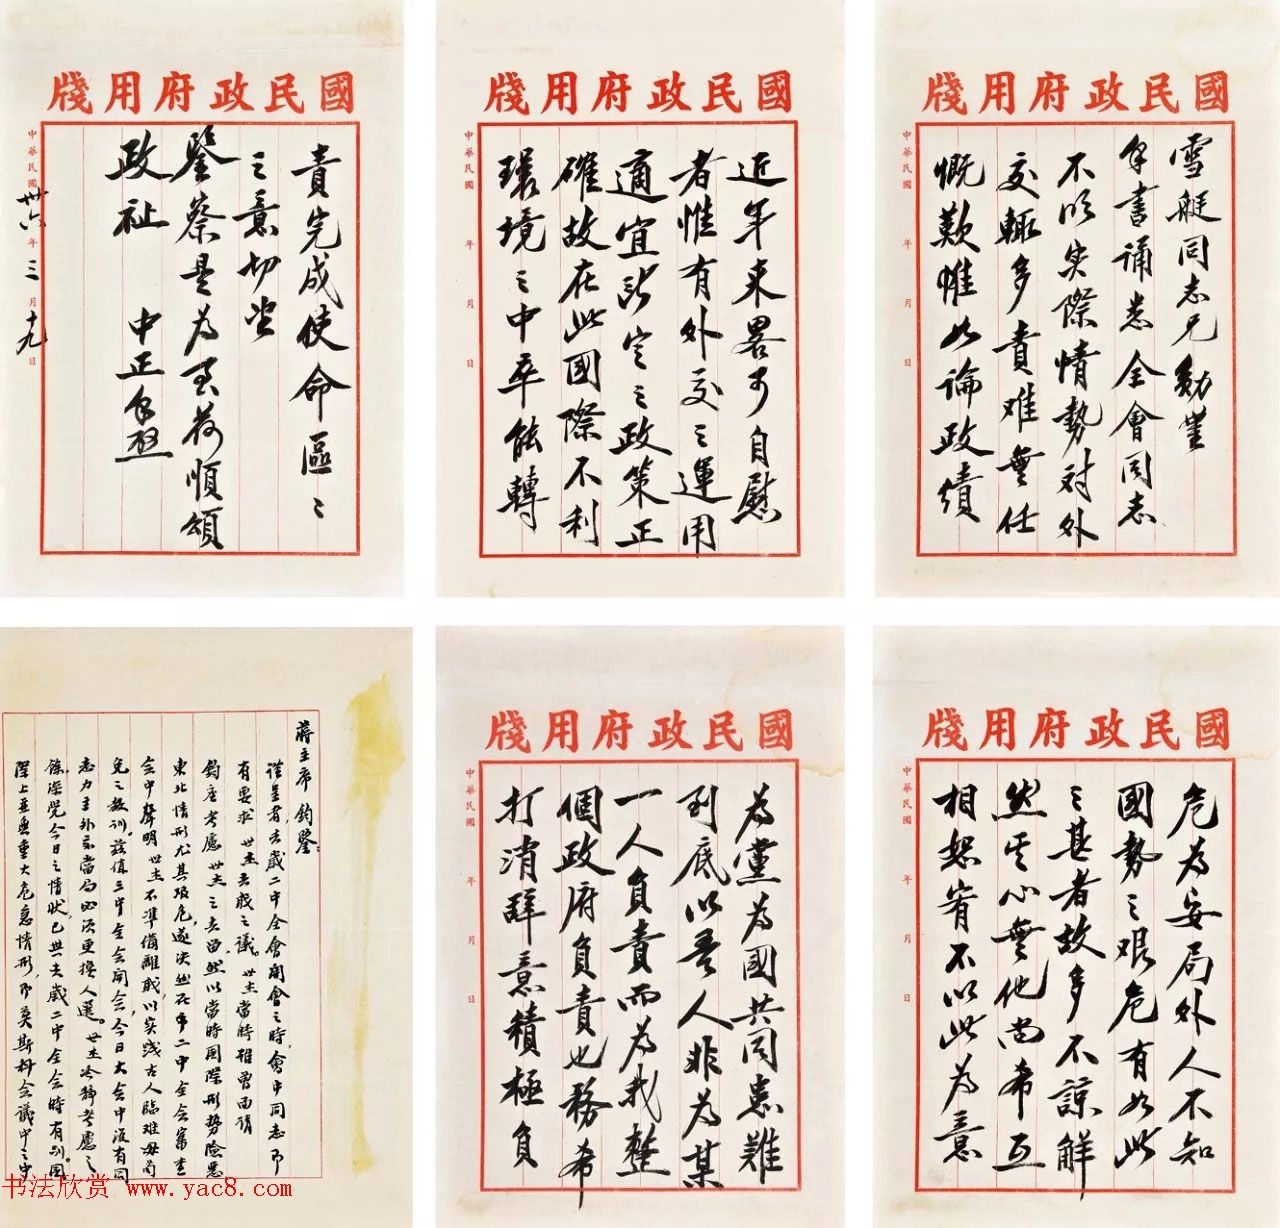 國民政府用牋
雪艇同志兄勛鑒
手書誦悉全會同志
不明实際情勢对外
交輒多責难無任
慨歎惟如論政績
中華民國 年 月 日
國民政府用牋
近年來畧可自慰
者惟有外交之運用
適宜所定之政策正
確故在此國際不利
環境之中卒能轉
中華民國 年 月 日
國民政府用牋
危為安局外人不知
國勢之艰危有如此
之甚者故多不諒解
然其心無他尚希互
相恕宥不以此為意
中華民國 年 月 日
國民政府用牋
為黨為國共同患難
到底以吾人非為某
一人負責而為我整
個政府負責也務希
打消辞意積極負
中華民國 年 月 日
國民政府用牋
責完成使命區〻
之意切望
鑒察是為至荷順頌
政祉 中正手啟
中華民國卅六年三月十九日
蔣主席鈞鑒：
謹呈者，去歲二中全會開會之時，會中同志即
有要求世杰去職之議。世杰當時經曾面請
鈞座考慮世杰之去留，然以當時國際形勢險惡
東北情形尤其吸危，遂決然在第二中全會審查
会中聲明世杰不準備離職，以实踐古人臨难毋苟
免之教训。茲值三中全会開会，今日大会中復有同
志力主外交當局必须更換人選。世杰冷靜考慮之
餘，深覺今日之情状，已與去歲二中全会時有別。國
際上並無重大危急情形，即莫斯科会議中之中
书法欣赏 www.yac8.com